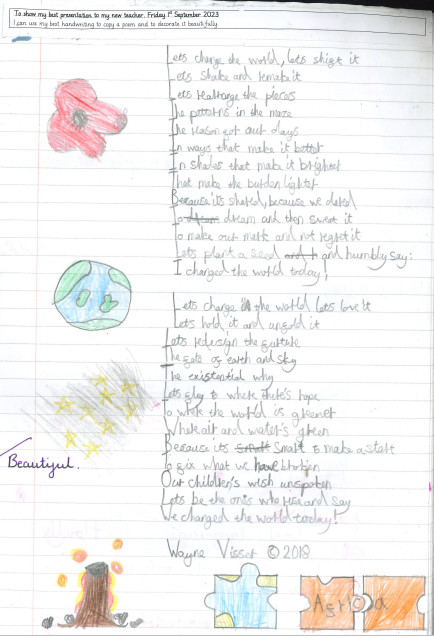 To show my best presentation to my new teacher. Friday 1st September 2023
I can use my best handwriting to copy a poem and to decorate it beautifully.
Lets change the world, lets shigt it
Lets shake and remake it
Lets rearrange the pieces
The patterns in the maze
The reason for our days
In ways that make it better
In shades that make it brighter
That make the burden lighter
Because its shared, because we dared
To dream dream and then sweat it
To make our mark and not regret it
Lets plant a seed and h and humbly say:
I changed the world today!
Lets change the world lets love it
Lets hold it and unfold it
Lets redesign the
The fate of earth and sky
The existential why
Lets fly to where there's hope
To where the world is greener
Where air and water's green
Because its smart smart to make a start
To fix what we have broken
Our children's wish unspoken
Lets be the ones who rise and say
We changed the world today!
Wayne Visser © 2018
Beautiful.